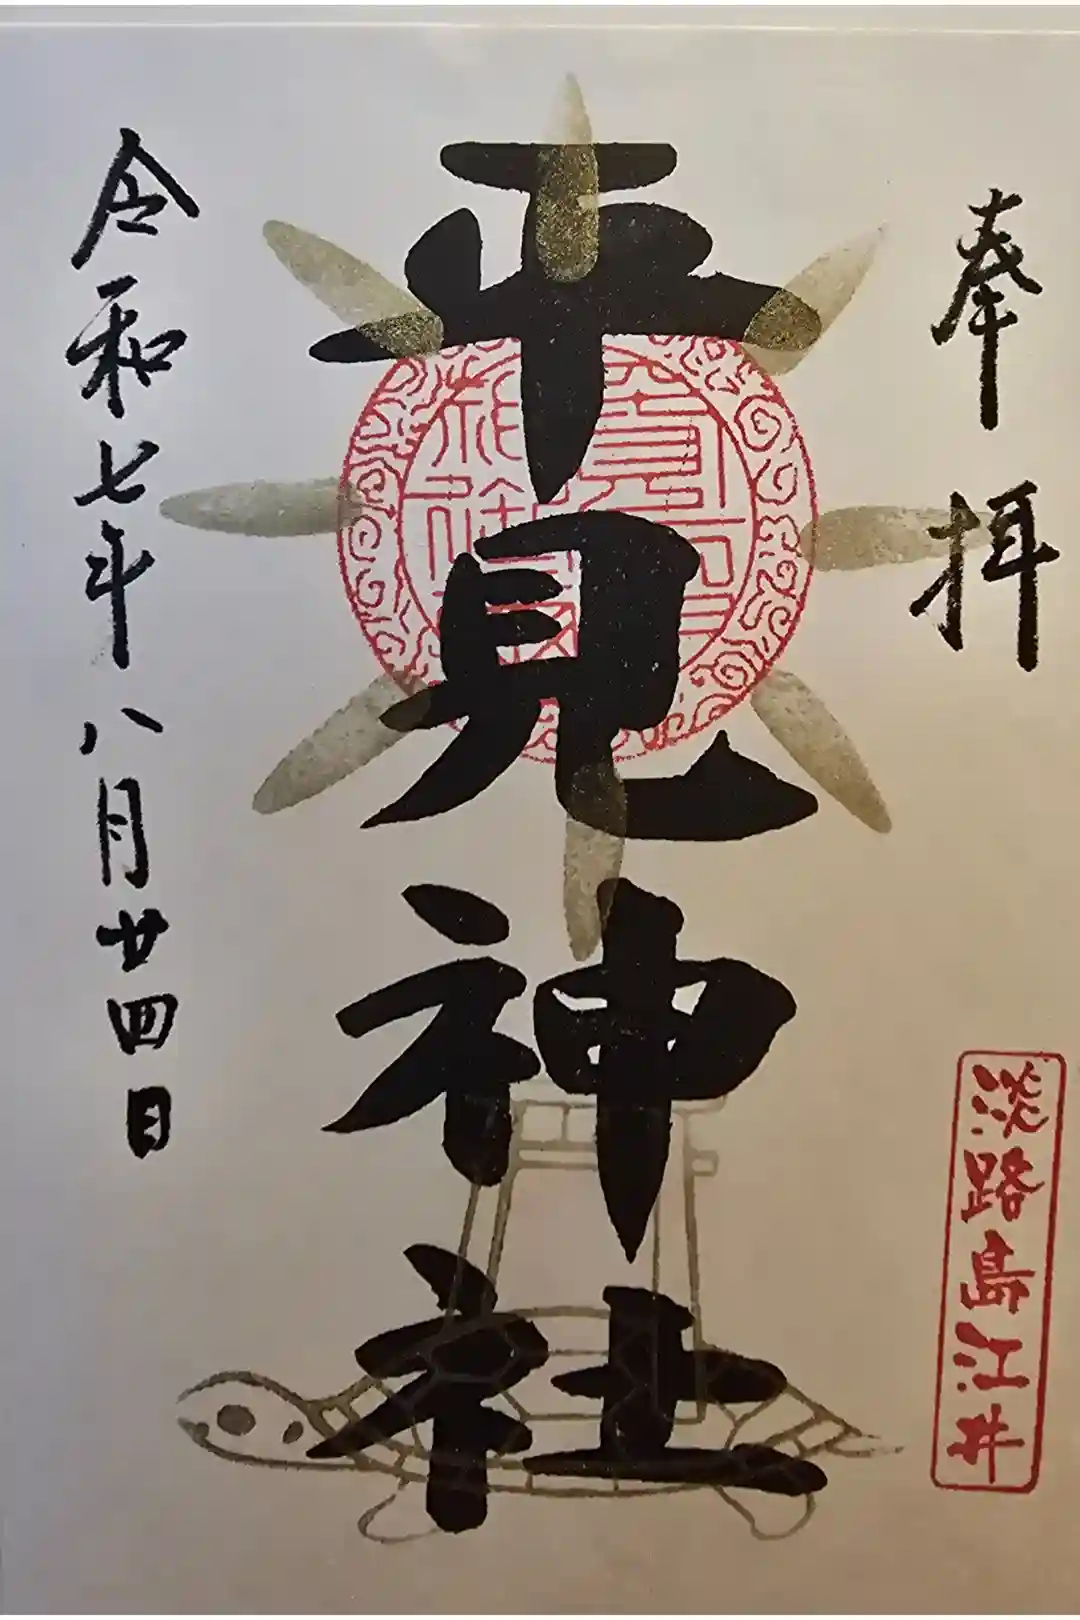 奉拝
淡路島江井
平見神社
令和七年八月廿四日